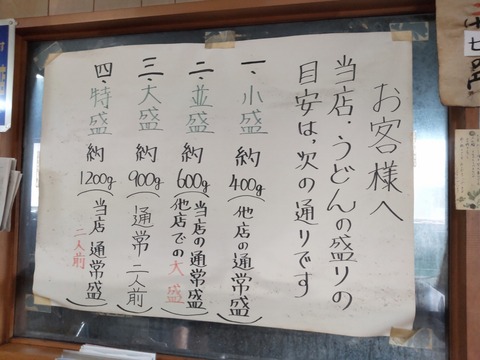 お客様へ
当店・うどんの盛りの
目安は、次の通りです
一・小盛 約400g(他店の通常盛)
二・並盛 約600g(当店の通常盛 他店での大盛)
三・大盛 約900g(通常二人前)
四・特盛 約1200g(当店通常盛 二人前)